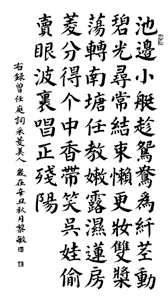 池邊小艇趁鴛鴦為動
碧光尋常結束懶更妝雙槳
蕩轉南塘任教嫩露濕蓮房
菱分得个中香帶笑吳娃偷
賣眼波裏唱正殘陽
右録曾任庭詞采菱美人 歲在辛丑秋月黎敏